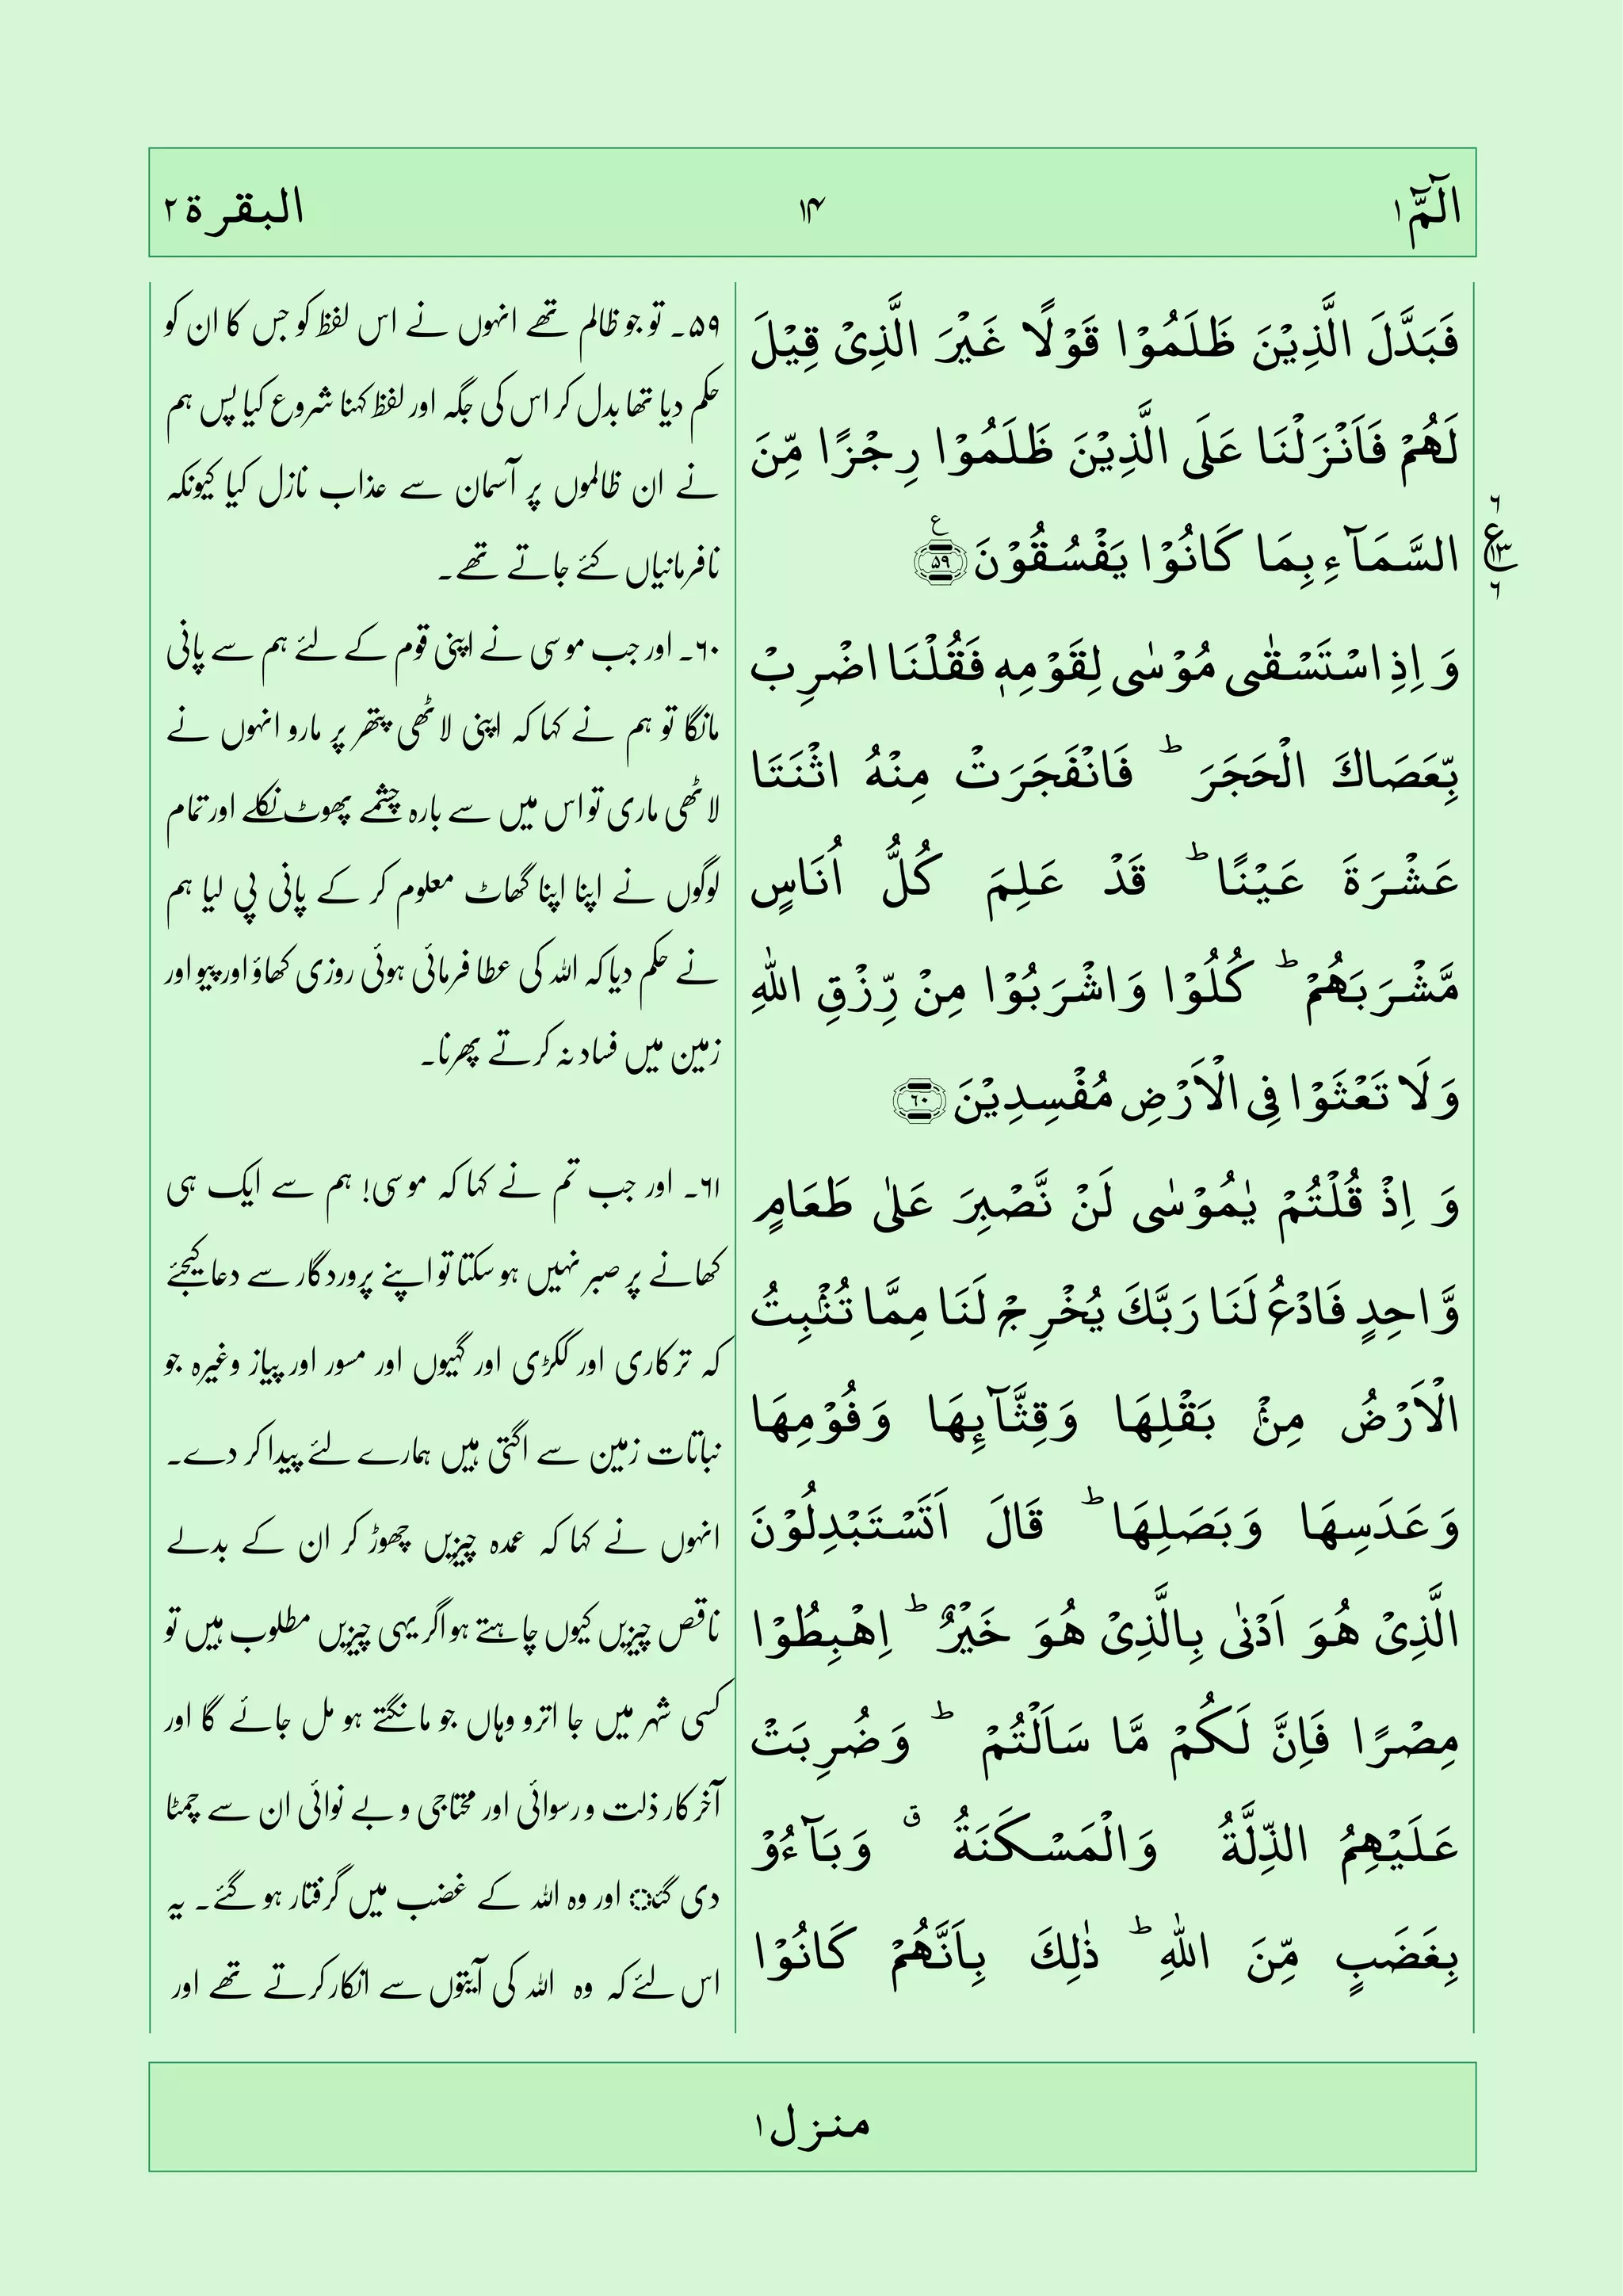 الٓمّٓ ۱
۱۴
البقرة ۲
فَبَدَّلَ الَّذِيْنَ ظَلَمُوْا قَوْلًا غَيْرَ الَّذِىْ قِيْلَ
لَهُمْ فَاَنْزَلْنَا عَلَى الَّذِيْنَ ظَلَمُوْا رِجْزًا مِّنَ
السَّمَآءِ بِمَا كَانُوْا يَفْسُقُوْنَ ﴿۵۹﴾ ع
۶
ع ۱۳
۶
وَ اِذِ اسْتَسْقٰى مُوْسٰى لِقَوْمِهٖ فَقُلْنَا اضْرِبْ
بِّعَصَاكَ الْحَجَرَ ؕ فَانْفَجَرَتْ مِنْهُ اثْنَتَا
عَشْرَةَ عَيْنًا ؕ قَدْ عَلِمَ كُلُّ اُنَاسٍ
مَّشْرَبَهُمْ ؕ كُلُوْا وَ اشْرَبُوْا مِنْ رِّزْقِ اللّٰهِ
وَ لَا تَعْثَوْا فِى الْاَرْضِ مُفْسِدِيْنَ ﴿۶۰﴾
وَ اِذْ قُلْتُمْ يٰمُوْسٰى لَنْ نَّصْبِرَ عَلٰى طَعَامٍ
وَّاحِدٍ فَادْعُ لَنَا رَبَّكَ يُخْرِجْ لَنَا مِمَّا تُنْۢبِتُ
الْاَرْضُ مِنْۢ بَقْلِهَا وَقِثَّآئِهَا وَفُوْمِهَا
وَعَدَسِهَا وَبَصَلِهَا ؕ قَالَ اَتَسْتَبْدِلُوْنَ
الَّذِىْ هُوَ اَدْنٰى بِالَّذِىْ هُوَ خَيْرٌ ؕ اِهْبِطُوْا
مِصْرًا فَاِنَّ لَكُمْ مَّا سَاَلْتُمْ ؕ وَضُرِبَتْ
عَلَيْهِمُ الذِّلَّةُ وَالْمَسْكَنَةُ ۗ وَبَآءُوْ
بِغَضَبٍ مِّنَ اللّٰهِ ؕ ذٰلِكَ بِاَنَّهُمْ كَانُوْا
۵۹۔ تو جو ظالم تھے انہوں نے اس لفظ کو جس کا ان کو
حکم دیا تھا بدل کر اس کی جگہ اور لفظ کہنا شروع کیا پس ہم
نے ان ظالموں پر آسمان سے عذاب نازل کیا کیونکہ
نافرمانیاں کئے جاتے تھے۔
۶۰۔ اور جب موسی نے اپنی قوم کے لئے ہم سے پانی
مانگا تو ہم نے کہا کہ اپنی لاٹھی پتھر پر مارو انہوں نے
لاٹھی ماری تو اس میں سے بارہ چشمے پھوٹ نکلے اور تمام
لوگوں نے اپنا اپنا گھاٹ معلوم کر کے پانی پی لیا ہم
نے حکم دیا کہ اللہ کی عطا فرمائی ہوئی روزی کھاؤ اور پیو اور
زمین میں فساد نہ کرتے پھرنا۔
۶۱۔ اور جب تم نے کہا کہ موسی! ہم سے ایک ہی
کھانے پر صبر نہیں ہو سکتا تو اپنے پروردگار سے دعا کیجئے
کہ ترکاری اور ککڑی اور گیہوں اور مسور اور پیاز وغیرہ جو
نباتات زمین سے اگتی ہیں ہمارے لئے پیدا کر دے۔
انہوں نے کہا کہ عمدہ چیزیں چھوڑ کر ان کے بدلے
ناقص چیزیں کیوں چاہتے ہو اگر یہی چیزیں مطلوب ہیں تو
کسی شہر میں جا اترو وہاں جو مانگتے ہو مل جائے گا اور
آخرکار ذلت و رسوائی اور محتاجی و بے نوائی ان سے چمٹا
دی گئ اور وہ اللہ کے غضب میں گرفتار ہو گئے۔ یہ
اس لئے کہ وہ اللہ کی آیتوں سے انکار کرتے تھے اور
منزل ۱